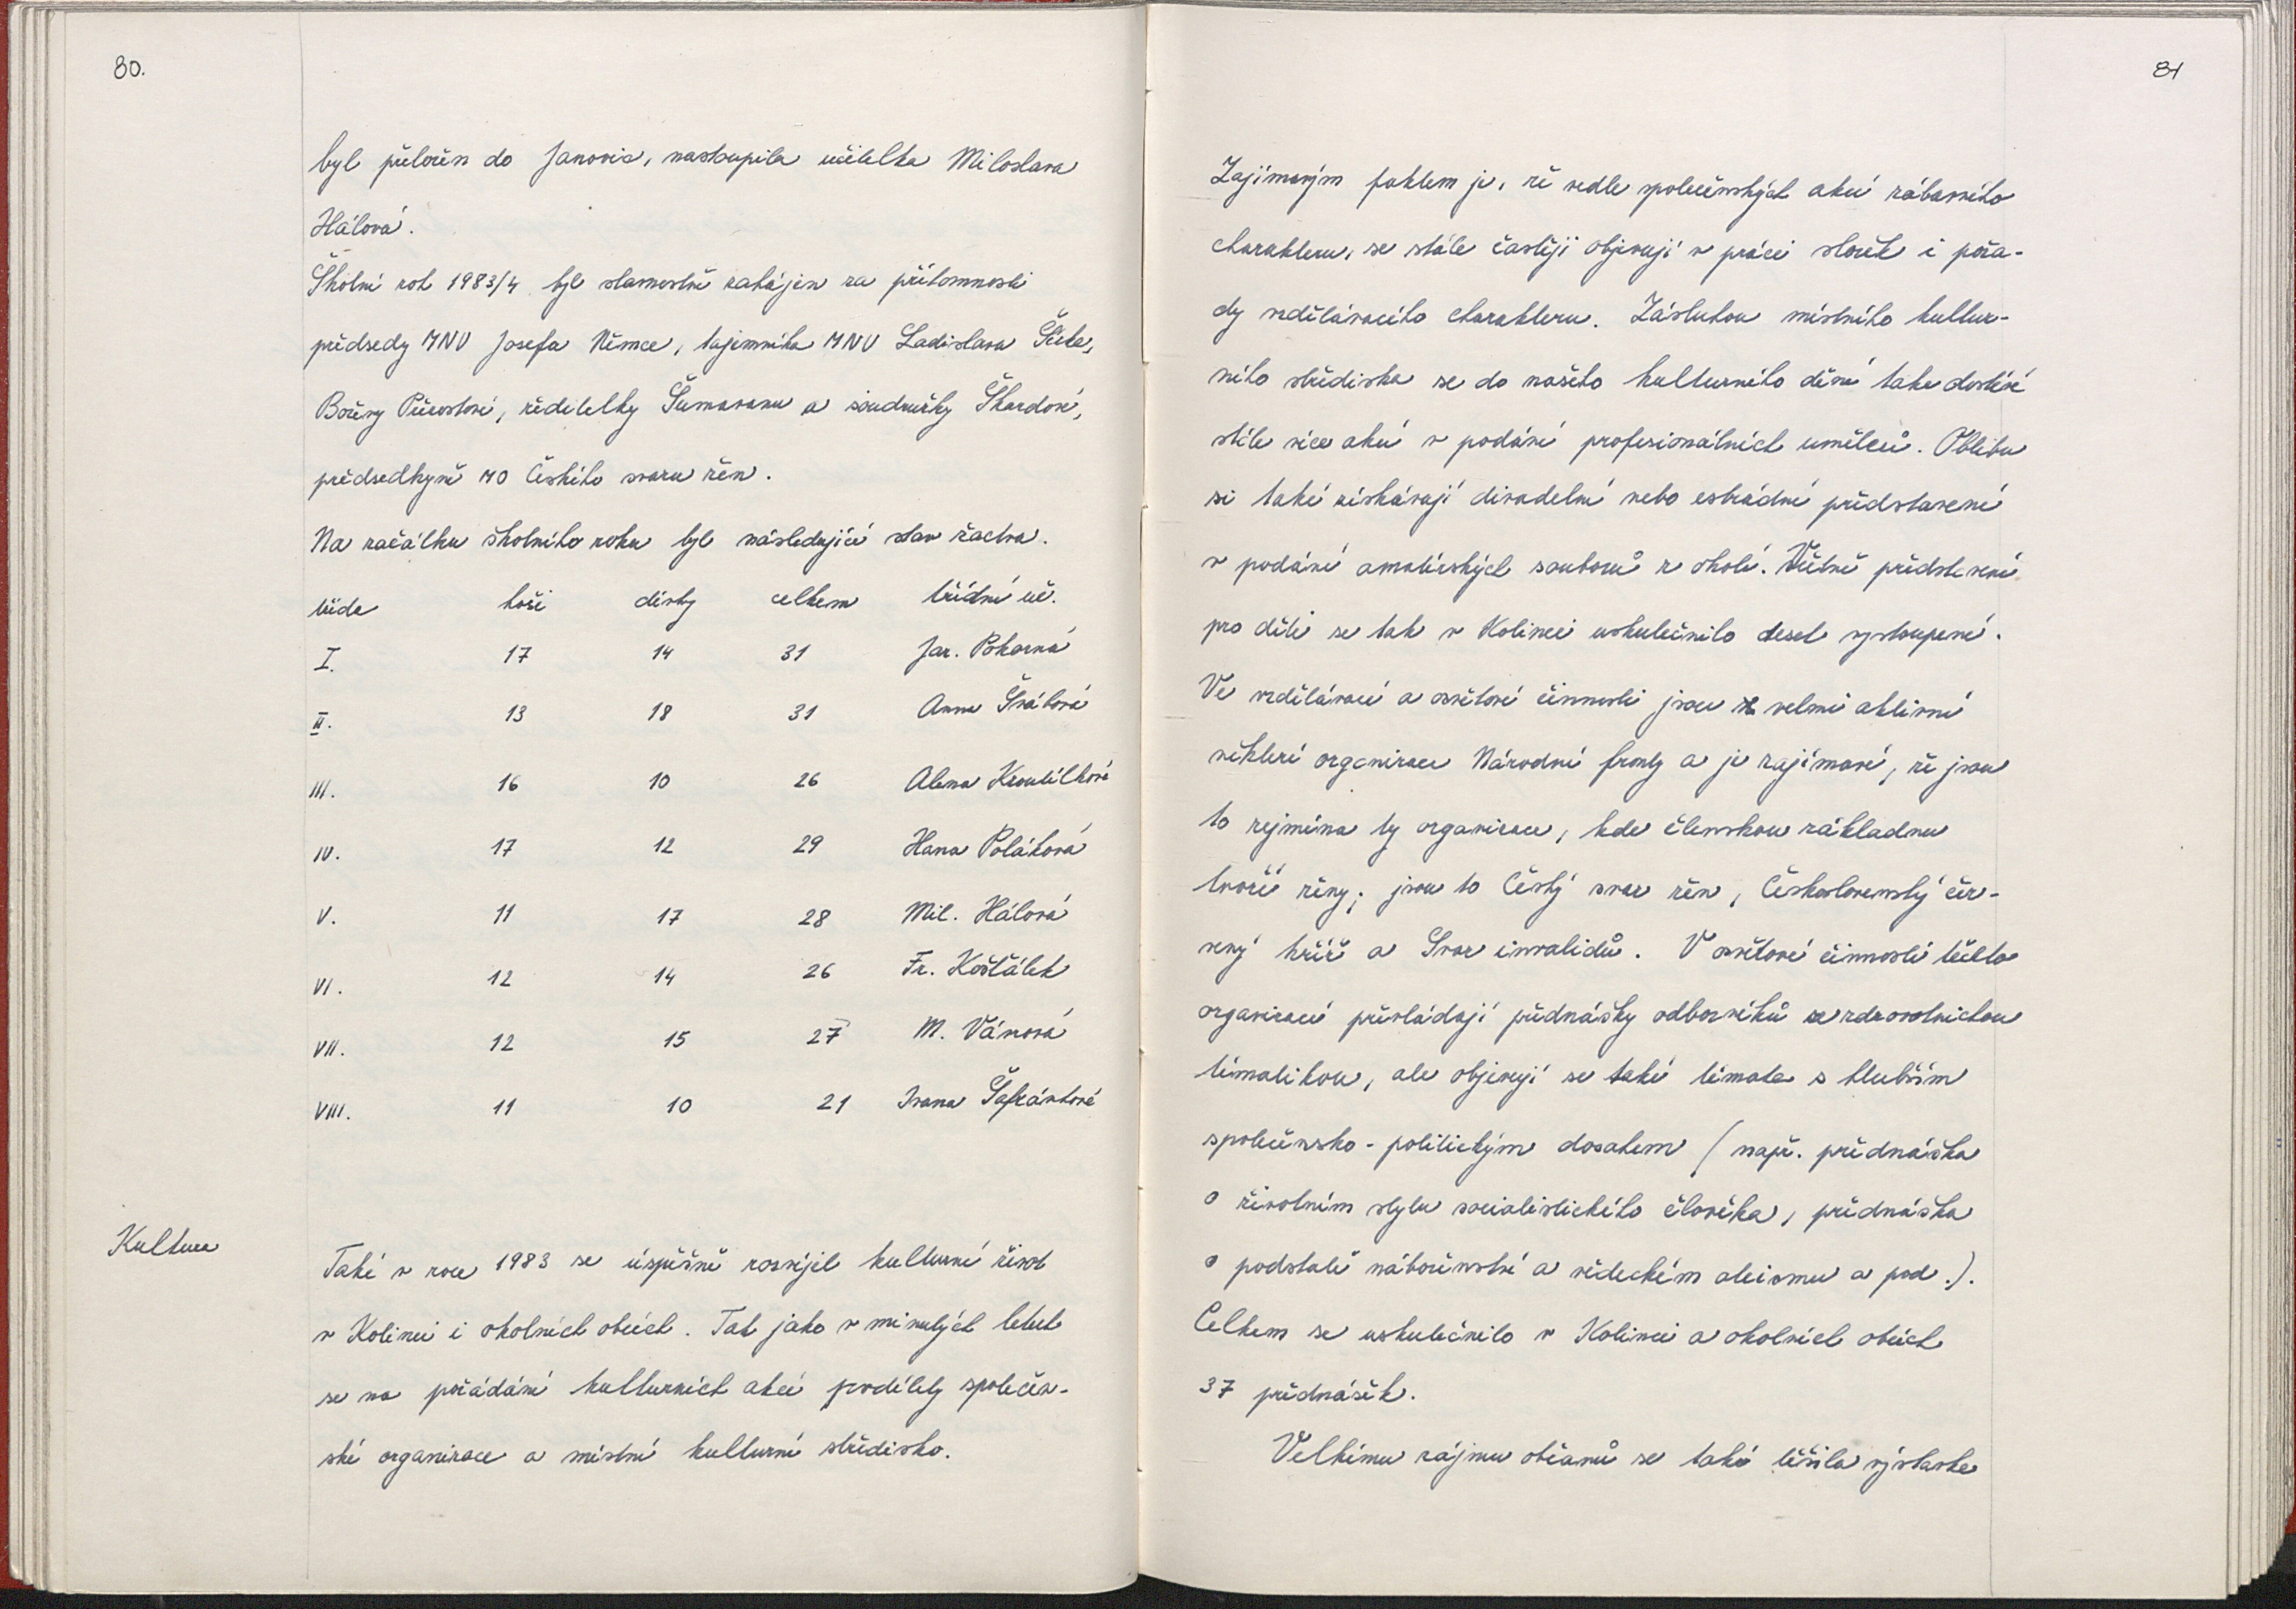 80.
byl přeložen do Janovic, nastoupila učitelka Miloslava
Hálová.
Školní rok 1983/4 byl slavnostně zahájen za přítomnosti
předsedy MNV Josefa Němce, tajemníka MNV Ladislava
Boženy, ředitelky Šumavanu a soudružky Škardové,
předsedkyně MO Českého svazu žen.
Na začátku školního roku byl následující stav žactva.
třída hoši dívky celkem třídní uč.
I. 17 14 31 Jar. Pokorná
II. 13 18 31 Anna Švábová
III. 16 10 26 Alena Kroutilková
IV. 17 12 29 Hana Poláková
V. 11 17 28 Mil. Hálová
VI. 12 14 26 Fr. Košťálek
VII. 12 15 27 M. Vánová
VIII. 11 10 21 Ivana Šafránková
Kultura
Také v roce 1983 se úspěšně rozvíjel kulturní život
v Kolinci i okolních obcích. Tak jako v minulých letech
se na pořádání kulturních akcí podílely společen-
ské organizace a místní kulturní středisko.
81
Zajímavým faktem je, že vedle společenských akcí zábavného
charakteru, se stále častěji objevují v práci složek i pořa-
dy vzdělávacího charakteru. Zásluhou místního kultur-
ního střediska se do našeho kulturního dění take dostává
stále více akcí v podání profesionálních umělců. Oblibu
si také získávají divadelní nebo estrádní představení
v podání amatérských souborů z okolí. Včetně představení
pro děti se tak v Kolinci uskutečnilo deset vystoupení.
Ve vzdělávací a osvětové činnosti jsou velmi aktivní
některé organizace Národní fronty a je zajímavé, že jsou
to zejména ty organizace, kde členskou základnu
tvoří ženy; jsou to Český svaz žen, Československý čer-
vený kříž a Svaz invalidů. V osvětové činnosti těchto
organizací převládají přednášky odborníků se zdravotnickou
tématikou, ale objevují se také témata s hlubším
společensko-politickým dosahem (např. přednáška
o životním stylu socialistického člověka, přednáška
o podstatě náboženství a vědeckém ateismu a pod.).
Celkem se uskutečnilo v Kolinci a okolních obcích
37 přednášek.
Velkému zájmu občanů se také těšila výstavka